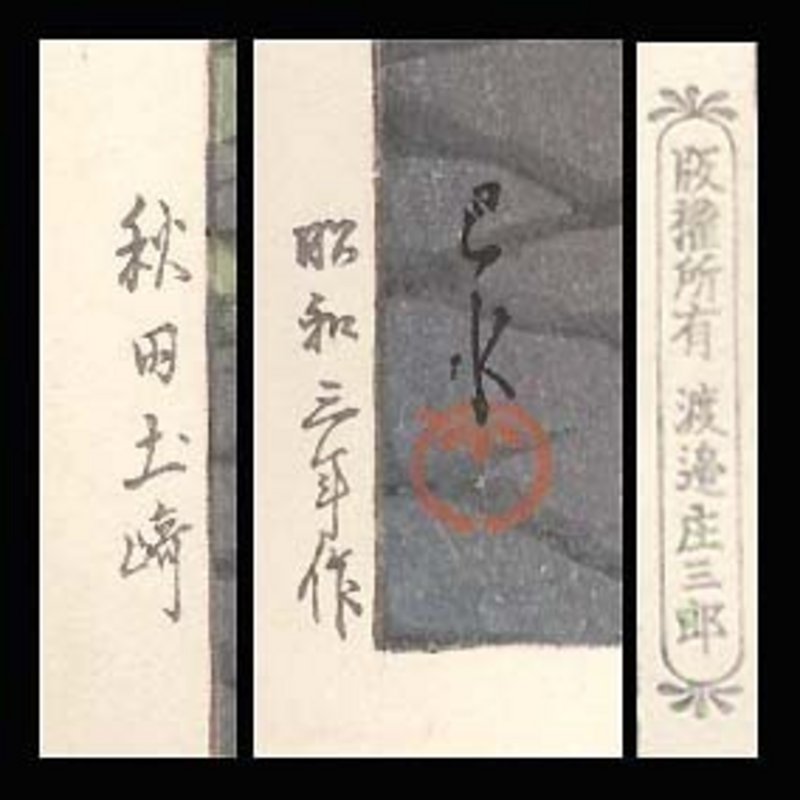 秋田土崎
昭和三年作
巴水
版權所有 渡邊庄三郎